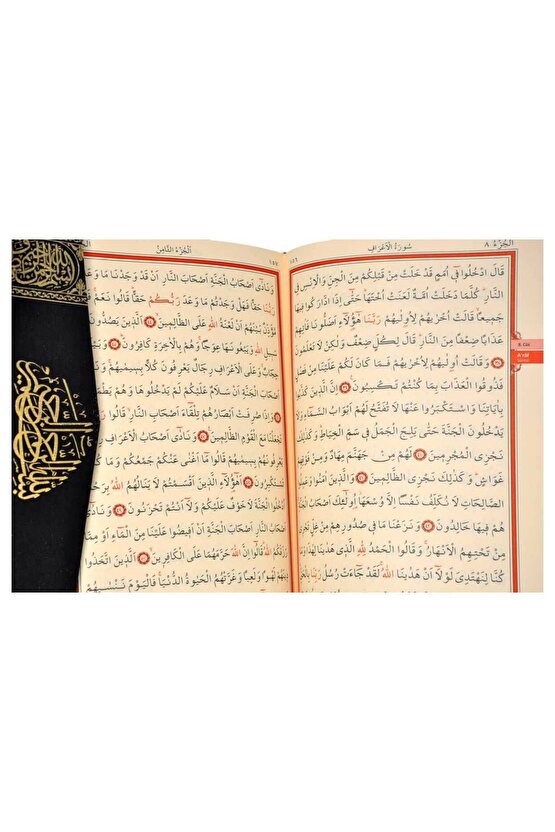 اَلْجُزْءُ ٨
سُورَةُ الْاَعْرَافِ
قَالَ ادْخُلُوا فٖٓي اُمَمٍ قَدْ خَلَتْ مِنْ قَبْلِكُمْ مِنَ الْجِنِّ وَالْاِنْسِ فِي
النَّارِ كُلَّمَا دَخَلَتْ اُمَّةٌ لَعَنَتْ اُخْتَهَا حَتّٰٓى اِذَا ادَّارَكُوا فٖيهَا
جَمٖيعًا قَالَتْ اُخْرٰيهُمْ لِاُو۫لٰيهُمْ رَبَّنَا هٰٓؤُ۬لَٓاءِ اَضَلُّونَا فَاٰتِهِمْ
عَذَابًا ضِعْفًا مِنَ النَّارِ قَالَ لِكُلٍّ ضِعْفٌ وَلٰكِنْ لَا تَعْلَمُونَ
وَقَالَتْ اُو۫لٰيهُمْ لِاُخْرٰيهُمْ فَمَا كَانَ لَكُمْ عَلَيْنَا مِنْ فَضْلٍ
فَذُوقُوا الْعَذَابَ بِمَا كُنْتُمْ تَكْسِبُونَ اِنَّ الَّذٖينَ كَذَّبُوا
بِاٰيَاتِنَا وَاسْتَكْبَرُوا عَنْهَا لَا تُفَتَّحُ لَهُمْ اَبْوَابُ السَّمَٓاءِ وَلَا
يَدْخُلُونَ الْجَنَّةَ حَتّٰى يَلِجَ الْجَمَلُ فٖي سَمِّ الْخِيَاطِ وَكَذٰلِكَ
نَجْزِي الْمُجْرِمٖينَ لَهُمْ مِنْ جَهَنَّمَ مِهَادٌ وَمِنْ فَوْقِهِمْ
غَوَاشٍ وَكَذٰلِكَ نَجْزِي الظَّالِمٖينَ وَالَّذٖينَ اٰمَنُوا وَعَمِلُوا
الصَّالِحَاتِ لَا نُكَلِّفُ نَفْسًا اِلَّا وُسْعَهَا اُو۬لٰٓئِكَ اَصْحَابُ الْجَنَّةِ
هُمْ فٖيهَا خَالِدُونَ وَنَزَعْنَا مَا فٖي صُدُورِهِمْ مِنْ غِلٍّ تَجْرٖي
مِنْ تَحْتِهِمُ الْاَنْهَارُ وَقَالُوا الْحَمْدُ لِلّٰهِ الَّذٖي هَدٰينَا لِهٰذَا وَمَا
كُنَّا لِنَهْتَدِيَ لَوْلَٓا اَنْ هَدٰينَا اللّٰهُ لَقَدْ جَٓاءَتْ رُسُلُ رَبِّنَا بِالْحَقِّ
8. Cüz
A'râf
اَلْجُزْءُ الثَّامِنُ
وَنَادٰٓى اَصْحَابُ الْجَنَّةِ اَصْحَابَ النَّارِ اَنْ قَدْ وَجَدْنَا مَا وَعَدَ
رَبُّنَا حَقًّا فَهَلْ وَجَدْتُمْ مَا وَعَدَ رَبُّكُمْ حَقًّا قَالُوا نَعَمْ
مُؤَذِّنٌ بَيْنَهُمْ اَنْ لَعْنَةُ اللّٰهِ عَلَى الظَّالِمٖينَ اَلَّذٖينَ يَصُدُّونَ
سَبٖيلِ اللّٰهِ وَيَبْغُونَهَا عِوَجًا وَهُمْ بِالْاٰخِرَةِ كَافِرُونَ
حِجَابٌ وَعَلَى الْاَعْرَافِ رِجَالٌ يَعْرِفُونَ كُلًّا بِسٖيمٰيهُمْ
اَصْحَابَ الْجَنَّةِ اَنْ سَلَامٌ عَلَيْكُمْ لَمْ يَدْخُلُوهَا وَهُمْ
وَاِذَا صُرِفَتْ اَبْصَارُهُمْ تِلْقَٓاءَ اَصْحَابِ النَّارِ قَالُوا رَبَّنَا
تَجْعَلْنَا مَعَ الْقَوْمِ الظَّالِمٖينَ وَنَادٰٓى اَصْحَابُ الْاَعْرَافِ
يَعْرِفُونَهُمْ بِسٖيمٰيهُمْ قَالُوا مَٓا اَغْنٰى عَنْكُمْ جَمْعُكُمْ وَمَا
تَسْتَكْبِرُونَ اَهٰٓؤُ۬لَٓاءِ الَّذٖينَ اَقْسَمْتُمْ لَا يَنَالُهُمُ اللّٰهُ
اُدْخُلُوا الْجَنَّةَ لَا خَوْفٌ عَلَيْكُمْ وَلَٓا اَنْتُمْ تَحْزَنُونَ وَنَادٰٓى
اَصْحَابُ النَّارِ اَصْحَابَ الْجَنَّةِ اَنْ اَفٖيضُوا عَلَيْنَا مِنَ الْمَٓاءِ اَوْ مِمَّا
رَزَقَكُمُ اللّٰهُ قَالُٓوا اِنَّ اللّٰهَ حَرَّمَهُمَا عَلَى الْكَافِرٖينَ اَلَّذٖينَ اتَّخَذُوا
دٖينَهُمْ لَهْوًا وَلَعِبًا وَغَرَّتْهُمُ الْحَيٰوةُ الدُّنْيَا فَالْيَوْمَ نَنْسٰيهُمْ